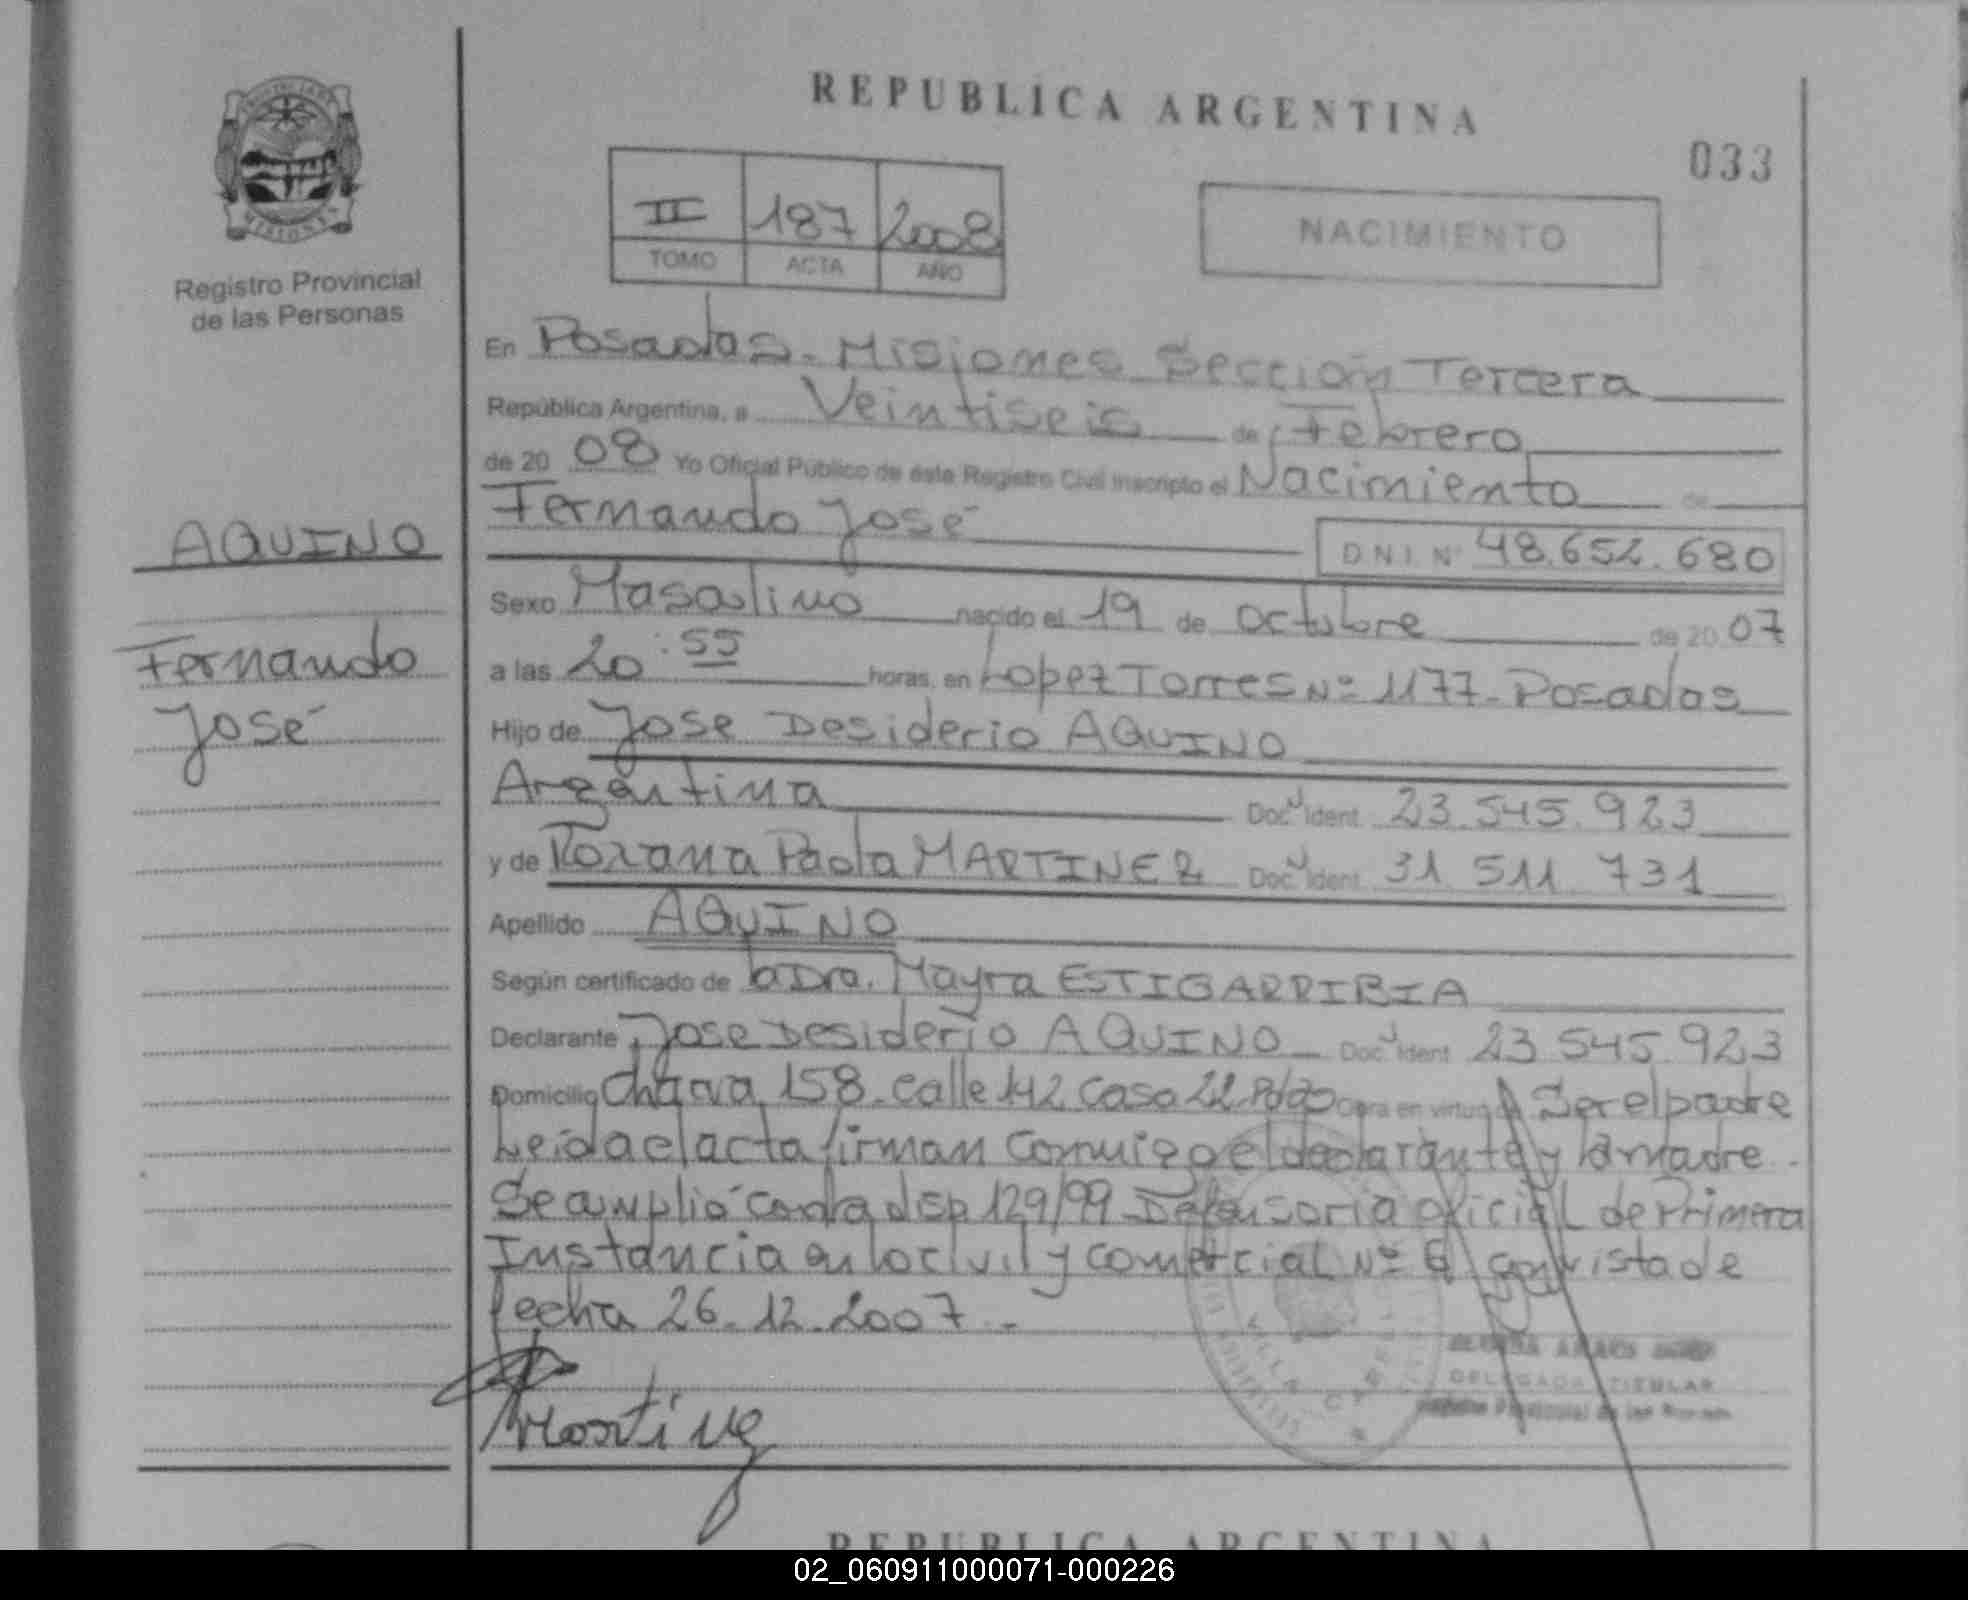 REPUBLICA ARGENTINA
033
II 187 2008
TOMO ACTA AÑO
NACIMIENTO
MISIONES
Registro Provincial
de las Personas
En Posadas - Misiones Sección Tercera
República Argentina, a Veintiseis de Febrero
de 20 08 Yo Oficial Público de este Registro Civil Inscripto el Nacimiento de
Fernando José
D N I N° 48.652.680
AQUINO
Fernando
José
Sexo Masculino nacido el 19 de octubre de 20 07
a las 20:55 horas, en Lopez Torres Nº 1177 - Posadas
Hijo de Jose Desiderio AQUINO
Argentina Doc. Ident. 23.545.923
y de Roxana Paola MARTINEZ Doc. Ident. 31 511 731
Apellido AQUINO
Según certificado de la Dra. Mayra ESTIGARRIBIA
Declarante Jose Desiderio AQUINO Doc. Ident. 23 545.923
Domicilio Chacra 158 - calle 142 Casa 22 - Pdas Obra en virtud de Ser el padre
Leida el acta firman conmigo el declarante y la madre -
Se amplió con la disp 129/99 - Defensoria oficial de Primera
Instancia en lo civil y comercial Nº 6 con vista de
fecha 26-12-2007.-
DELEGADA TITULAR
REPUBLICA ARGENTINA
02_060911000071-000226